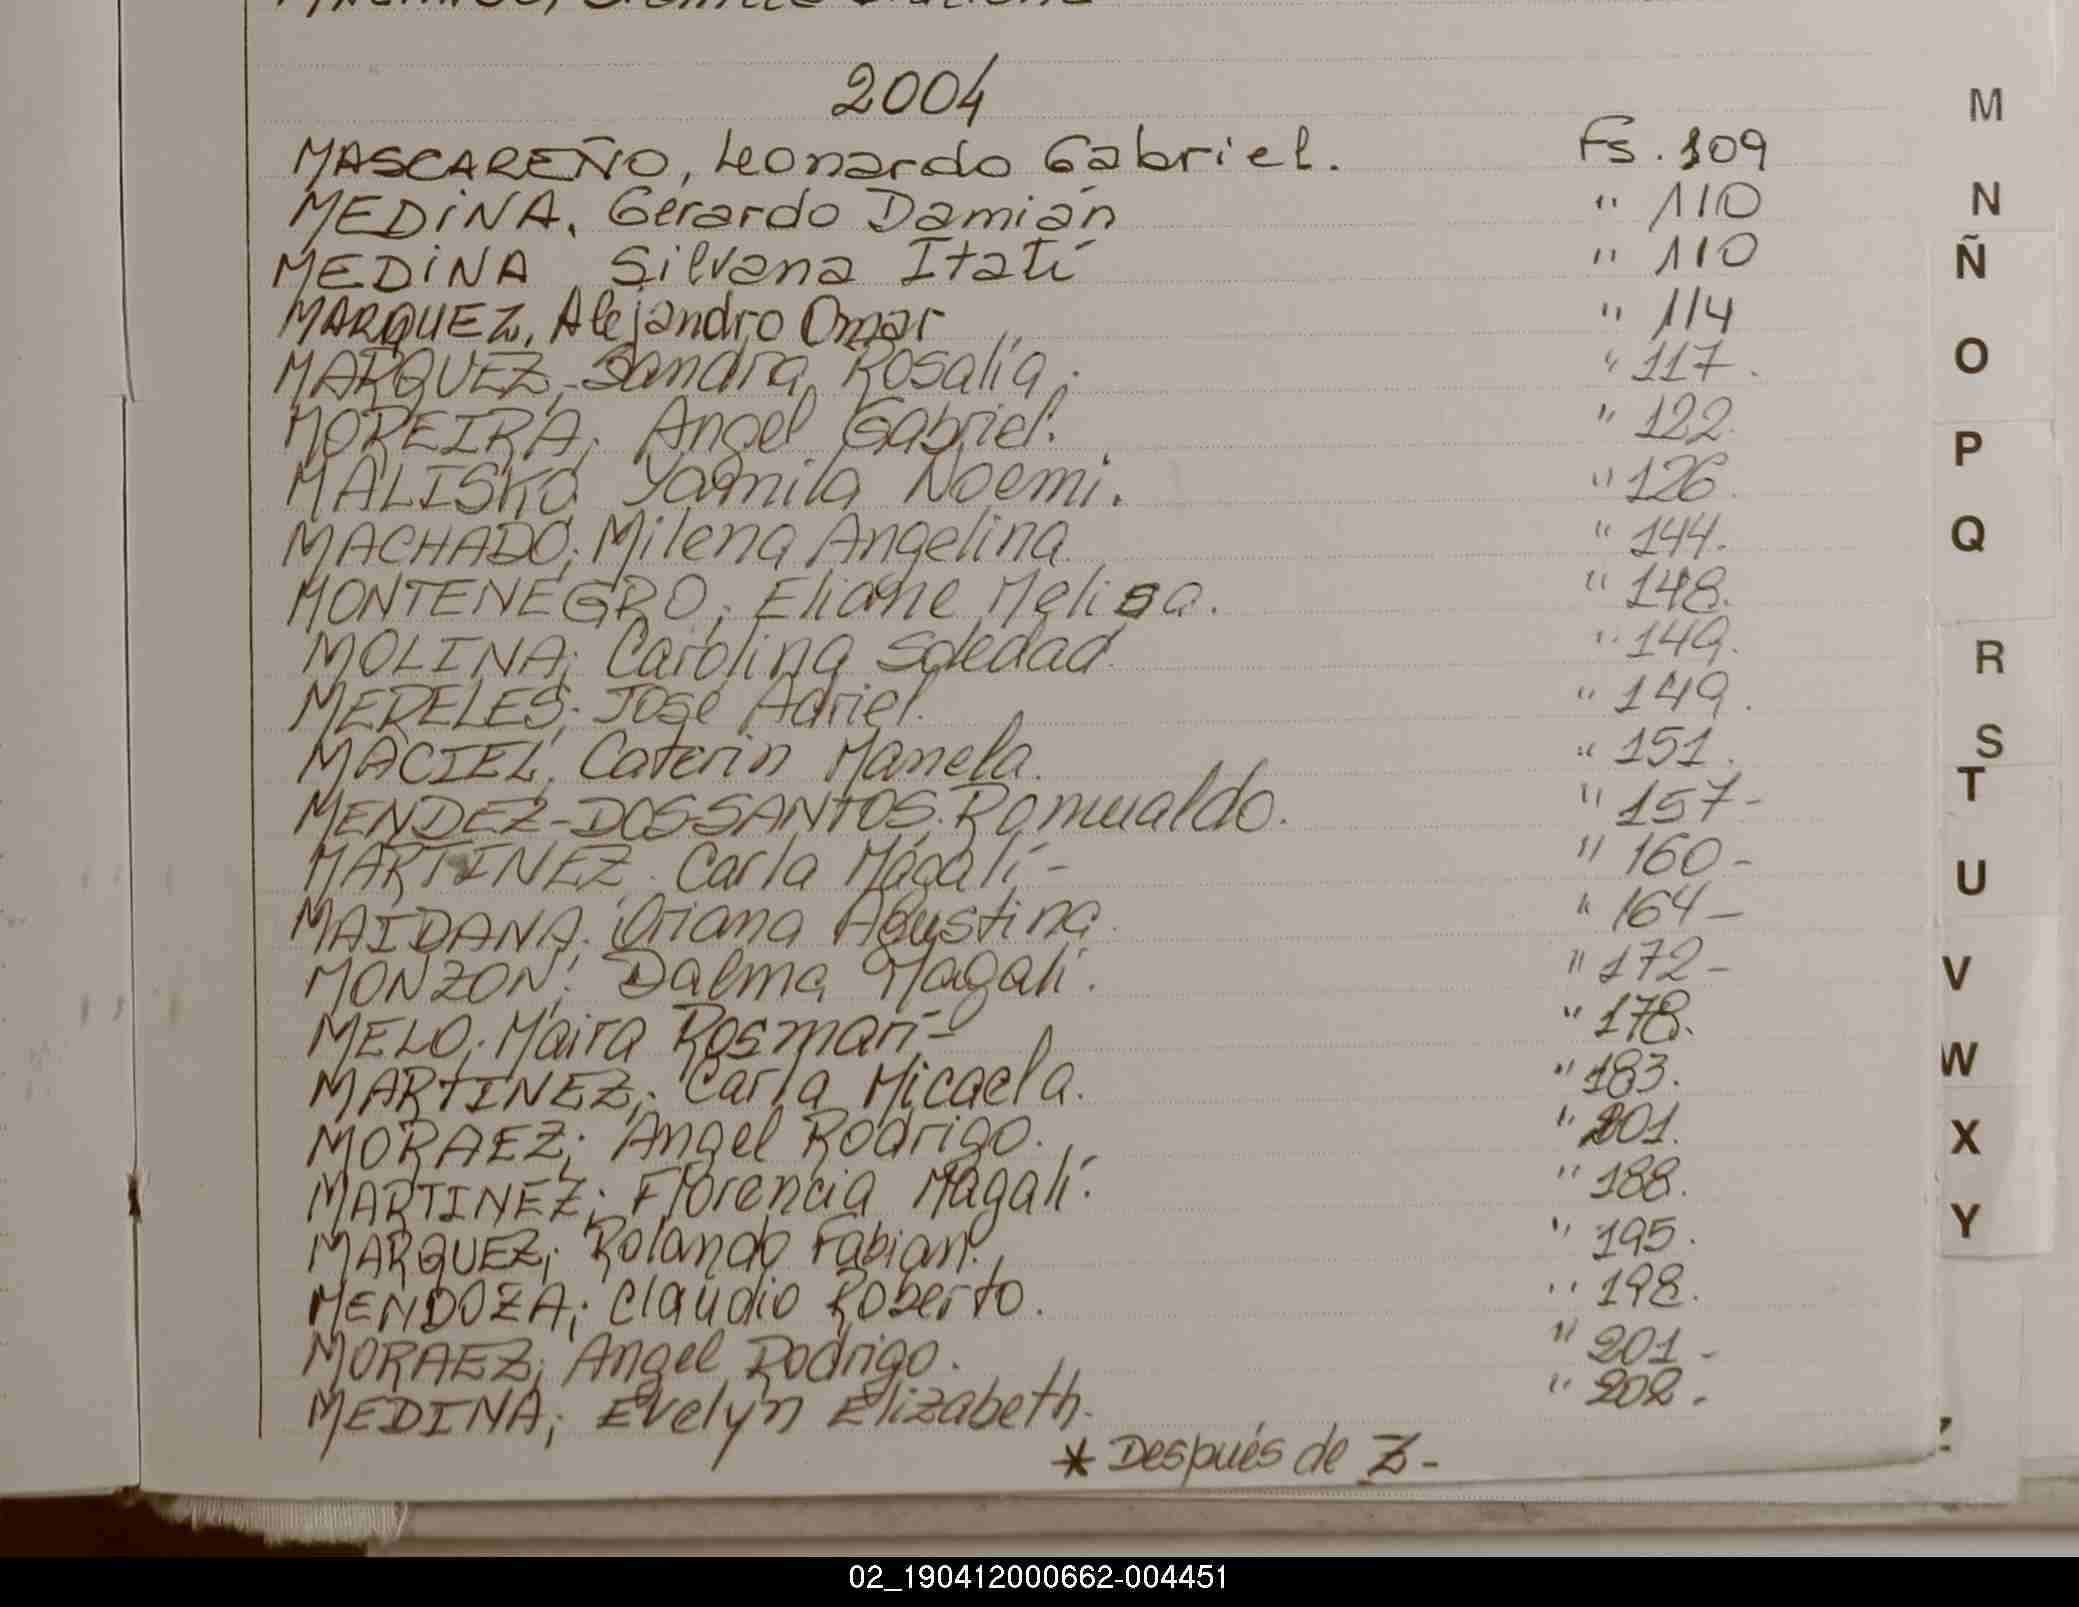 2004
MASCAREÑO, Leonardo Gabriel. Fs. 109
MEDINA, Gerardo Damián " 110
MEDINA Silvana Itatí " 110
MARQUEZ, Alejandro Omar " 114
MARQUEZ, Sandra Rosalía. " 117.
MOREIRA, Angel Gabriel. " 122.
MALISKO Yamila Noemi. " 126.
MACHADO; Milena Angelina " 144.
MONTENEGRO; Eliane Melisa. " 148.
MOLINA; Carolina Soledad. " 149.
MERELES; José Adriel. " 149.
MACIEL, Caterin Manela. " 151.
MENDEZ-DOS-SANTOS, Romualdo. " 157-
MARTINEZ. Carla Magalí- " 160-
MAIDANA, Oriana Agustina. " 164-
MONZON; Dalma Magalí. " 172-
MELO; Maira Rosmarí- " 178.
MARTINEZ; Carla Micaela. " 183.
MORAEZ; Angel Rodrigo. " 201.
MARTINEZ; Florencia Magalí. " 188.
MARQUEZ; Rolando Fabian. " 195.
MENDOZA; Claudio Roberto. " 198.
MORAEZ; Angel Rodrigo. " 201-
MEDINA; Evelyn Elizabeth. " 202-
* Después de Z-
M
N
Ñ
O
P
Q
R
S
T
U
V
W
X
Y
02_190412000662-004451